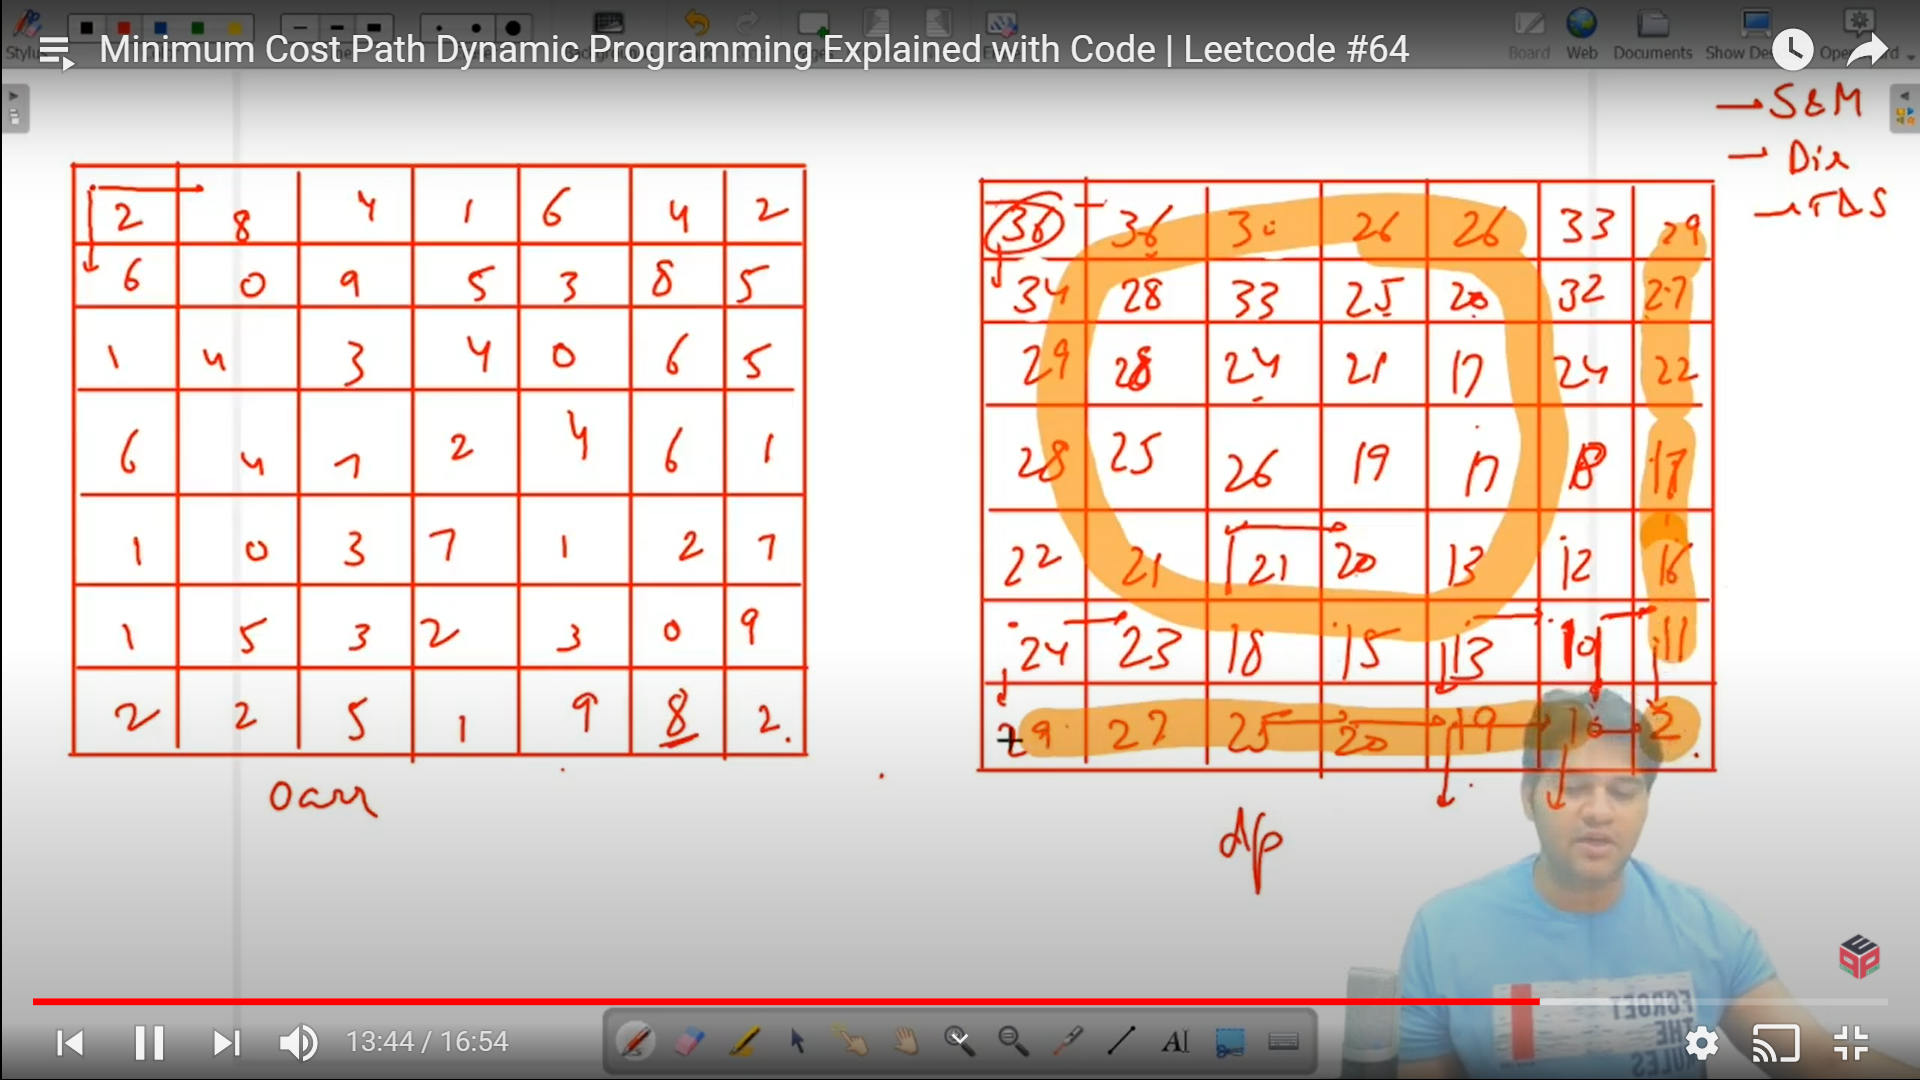 Minimum Cost Path Dynamic Programming Explained with Code | Leetcode #64
Board Web Documents
→ S&M
→ Dir
2 8 4 1 6 4 2
6 0 9 5 3 8 5
1 4 3 4 0 6 5
6 4 7 2 4 6 1
1 0 3 7 1 2 7
1 5 3 2 3 0 9
2 2 5 1 9 8 2.
36 36 30 26 26 33 29
34 28 33 25 20 32 27
29 28 24 21 17 24 22
28 25 26 19 17 18 17
22 21 21 20 13 12 16
24 23 18 15 13 10 11
29 27 25 20 19 10 2
dp
FORGET
THE
RULES
13:44 / 16:54
AI